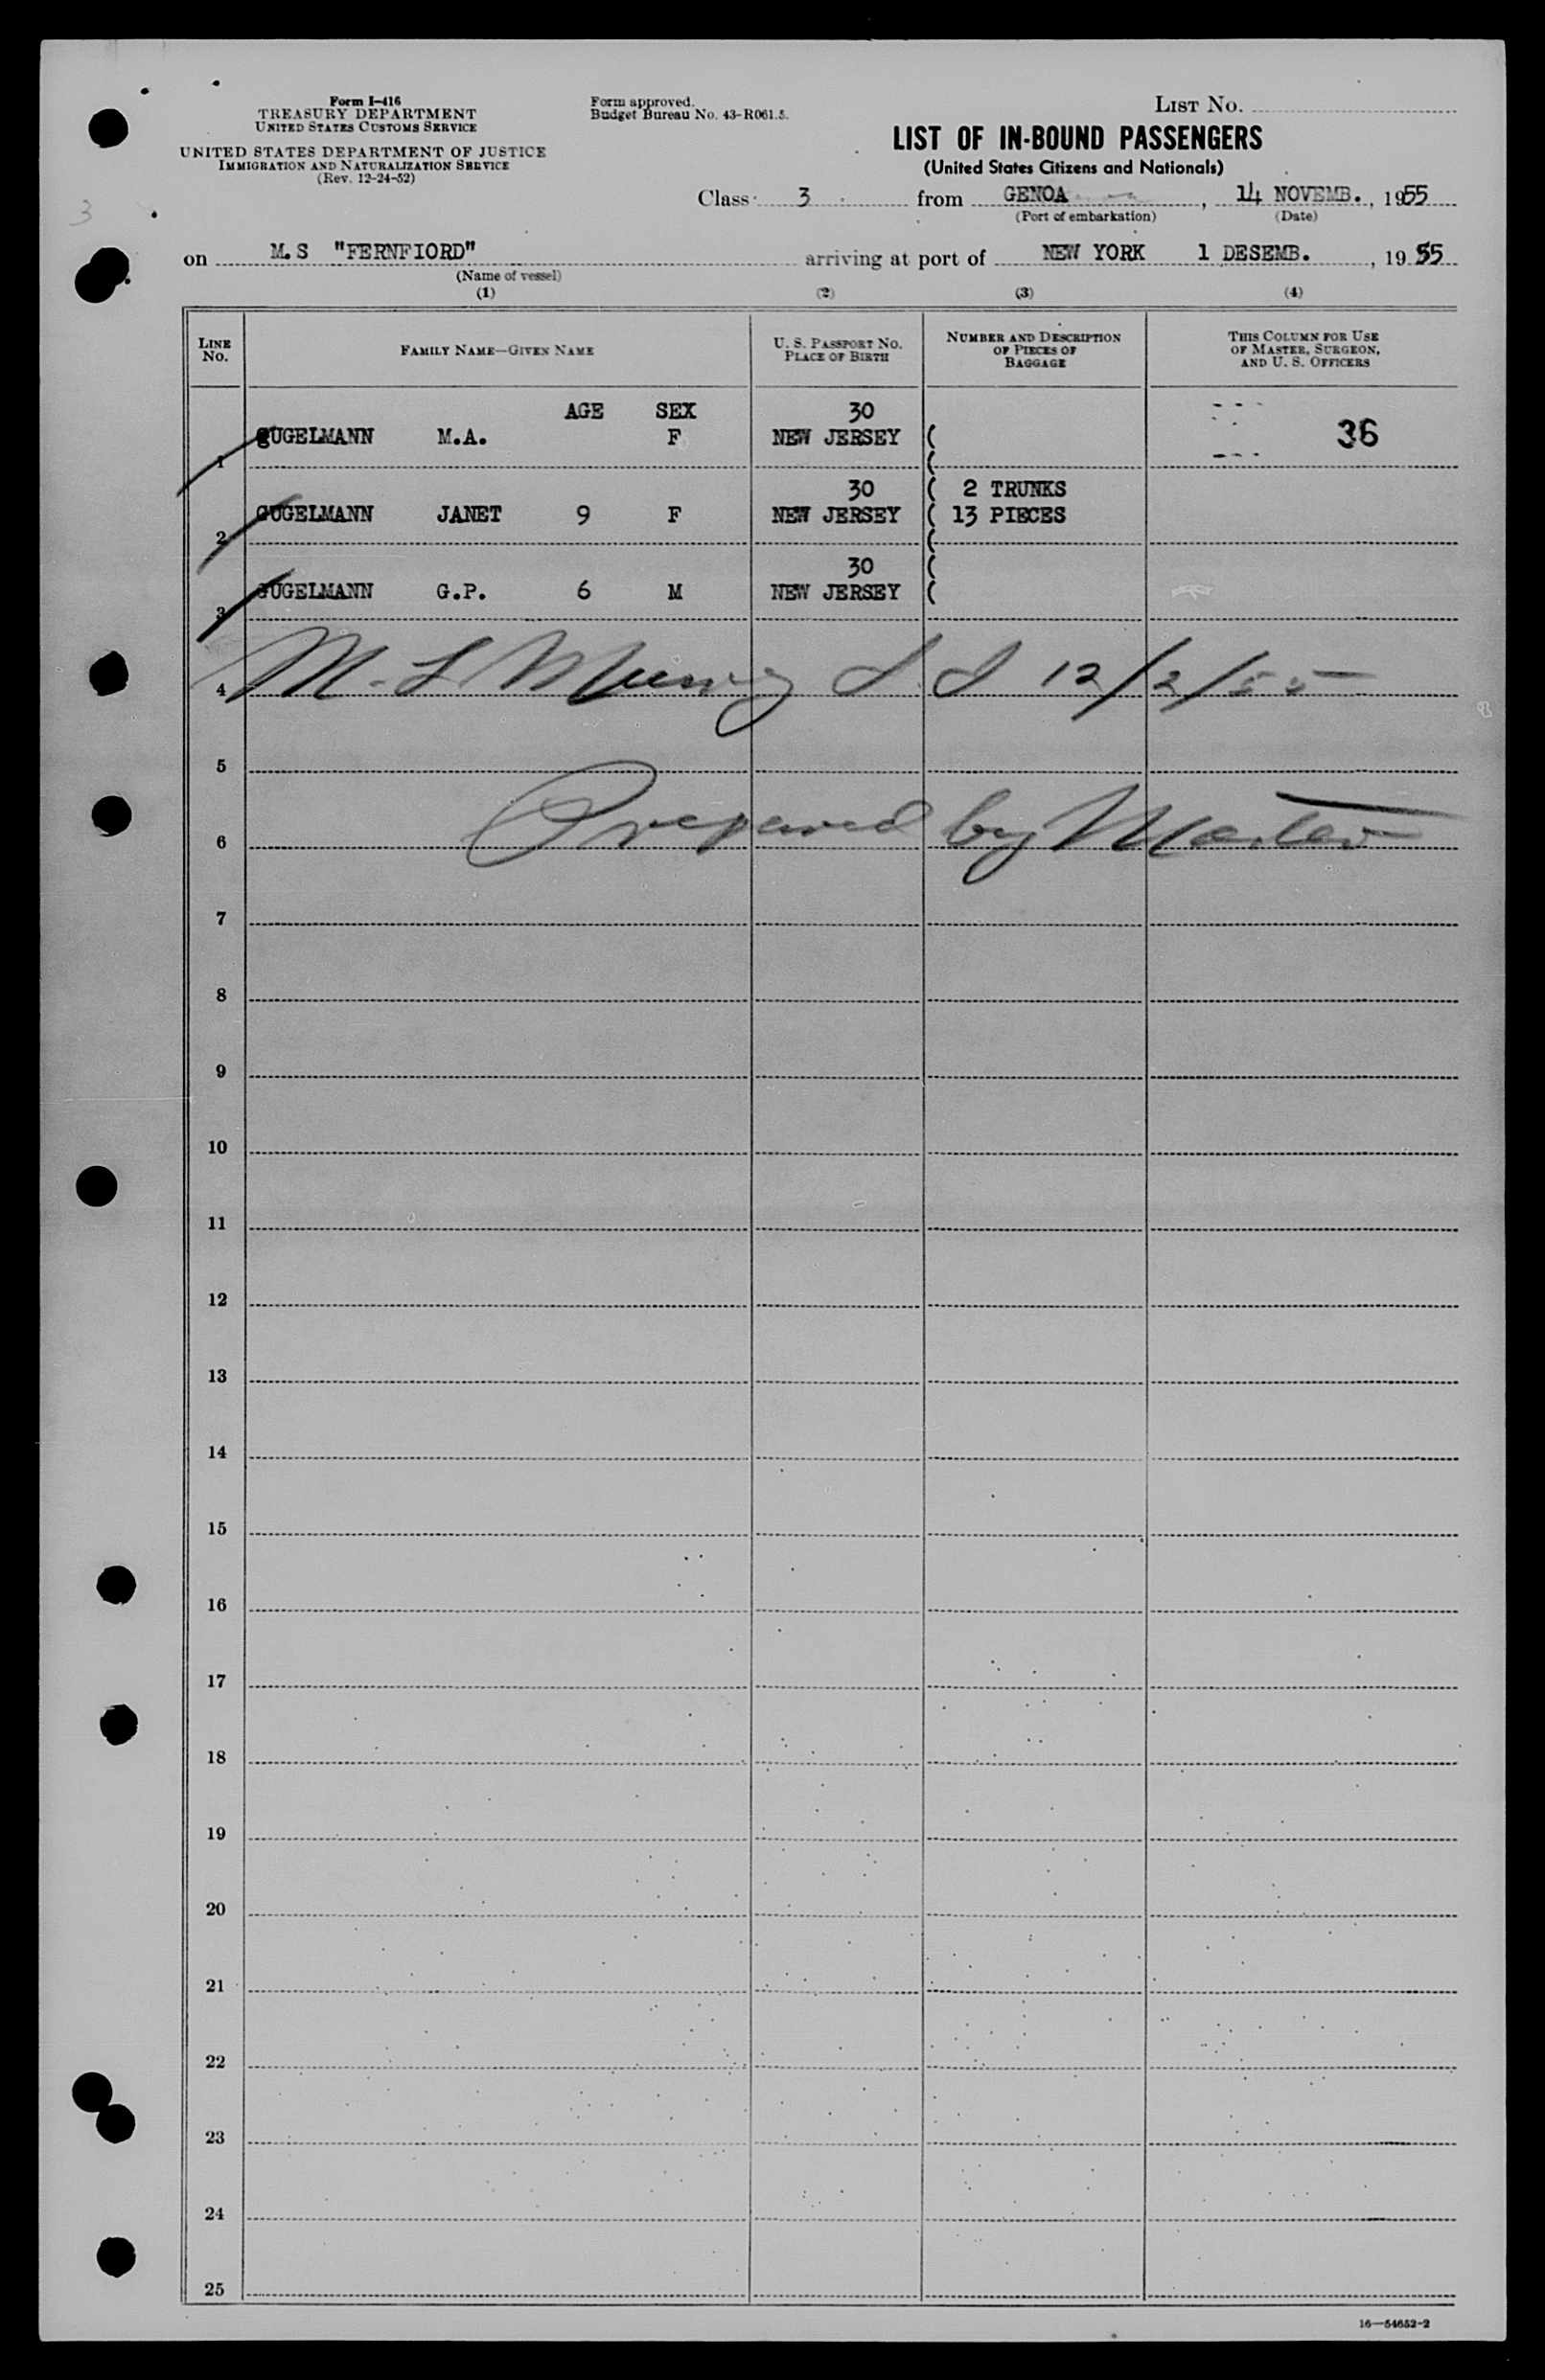 Form I-416
TREASURY DEPARTMENT
UNITED STATES CUSTOMS SERVICE
UNITED STATES DEPARTMENT OF JUSTICE
IMMIGRATION AND NATURALIZATION SERVICE
(Rev. 12-24-52)
Form approved.
Budget Bureau No. 43-R061.5.
LIST No.
LIST OF IN-BOUND PASSENGERS
(United States Citizens and Nationals)
3
Class 3 from GENOA, 14 NOVEMB., 1955
(Port of embarkation) (Date)
on M.S "FERNFIORD" arriving at port of NEW YORK 1 DESEMB., 1955
(Name of vessel)
(1) (2) (3) (4)
LINE No. FAMILY NAME—GIVEN NAME U. S. PASSPORT No. PLACE OF BIRTH NUMBER AND DESCRIPTION OF PIECES OF BAGGAGE THIS COLUMN FOR USE OF MASTER, SURGEON, AND U. S. OFFICERS
AGE SEX 30
GUGELMANN M.A. F NEW JERSEY ( 36
1 (
30 ( 2 TRUNKS
GUGELMANN JANET 9 F NEW JERSEY ( 13 PIECES
2 (
30 (
GUGELMANN G.P. 6 M NEW JERSEY (
3
4 M. L 12/2/55
5
6 Prepared by Master
7
8
9
10
11
12
13
14
15
16
17
18
19
20
21
22
23
24
25
16—54652-2